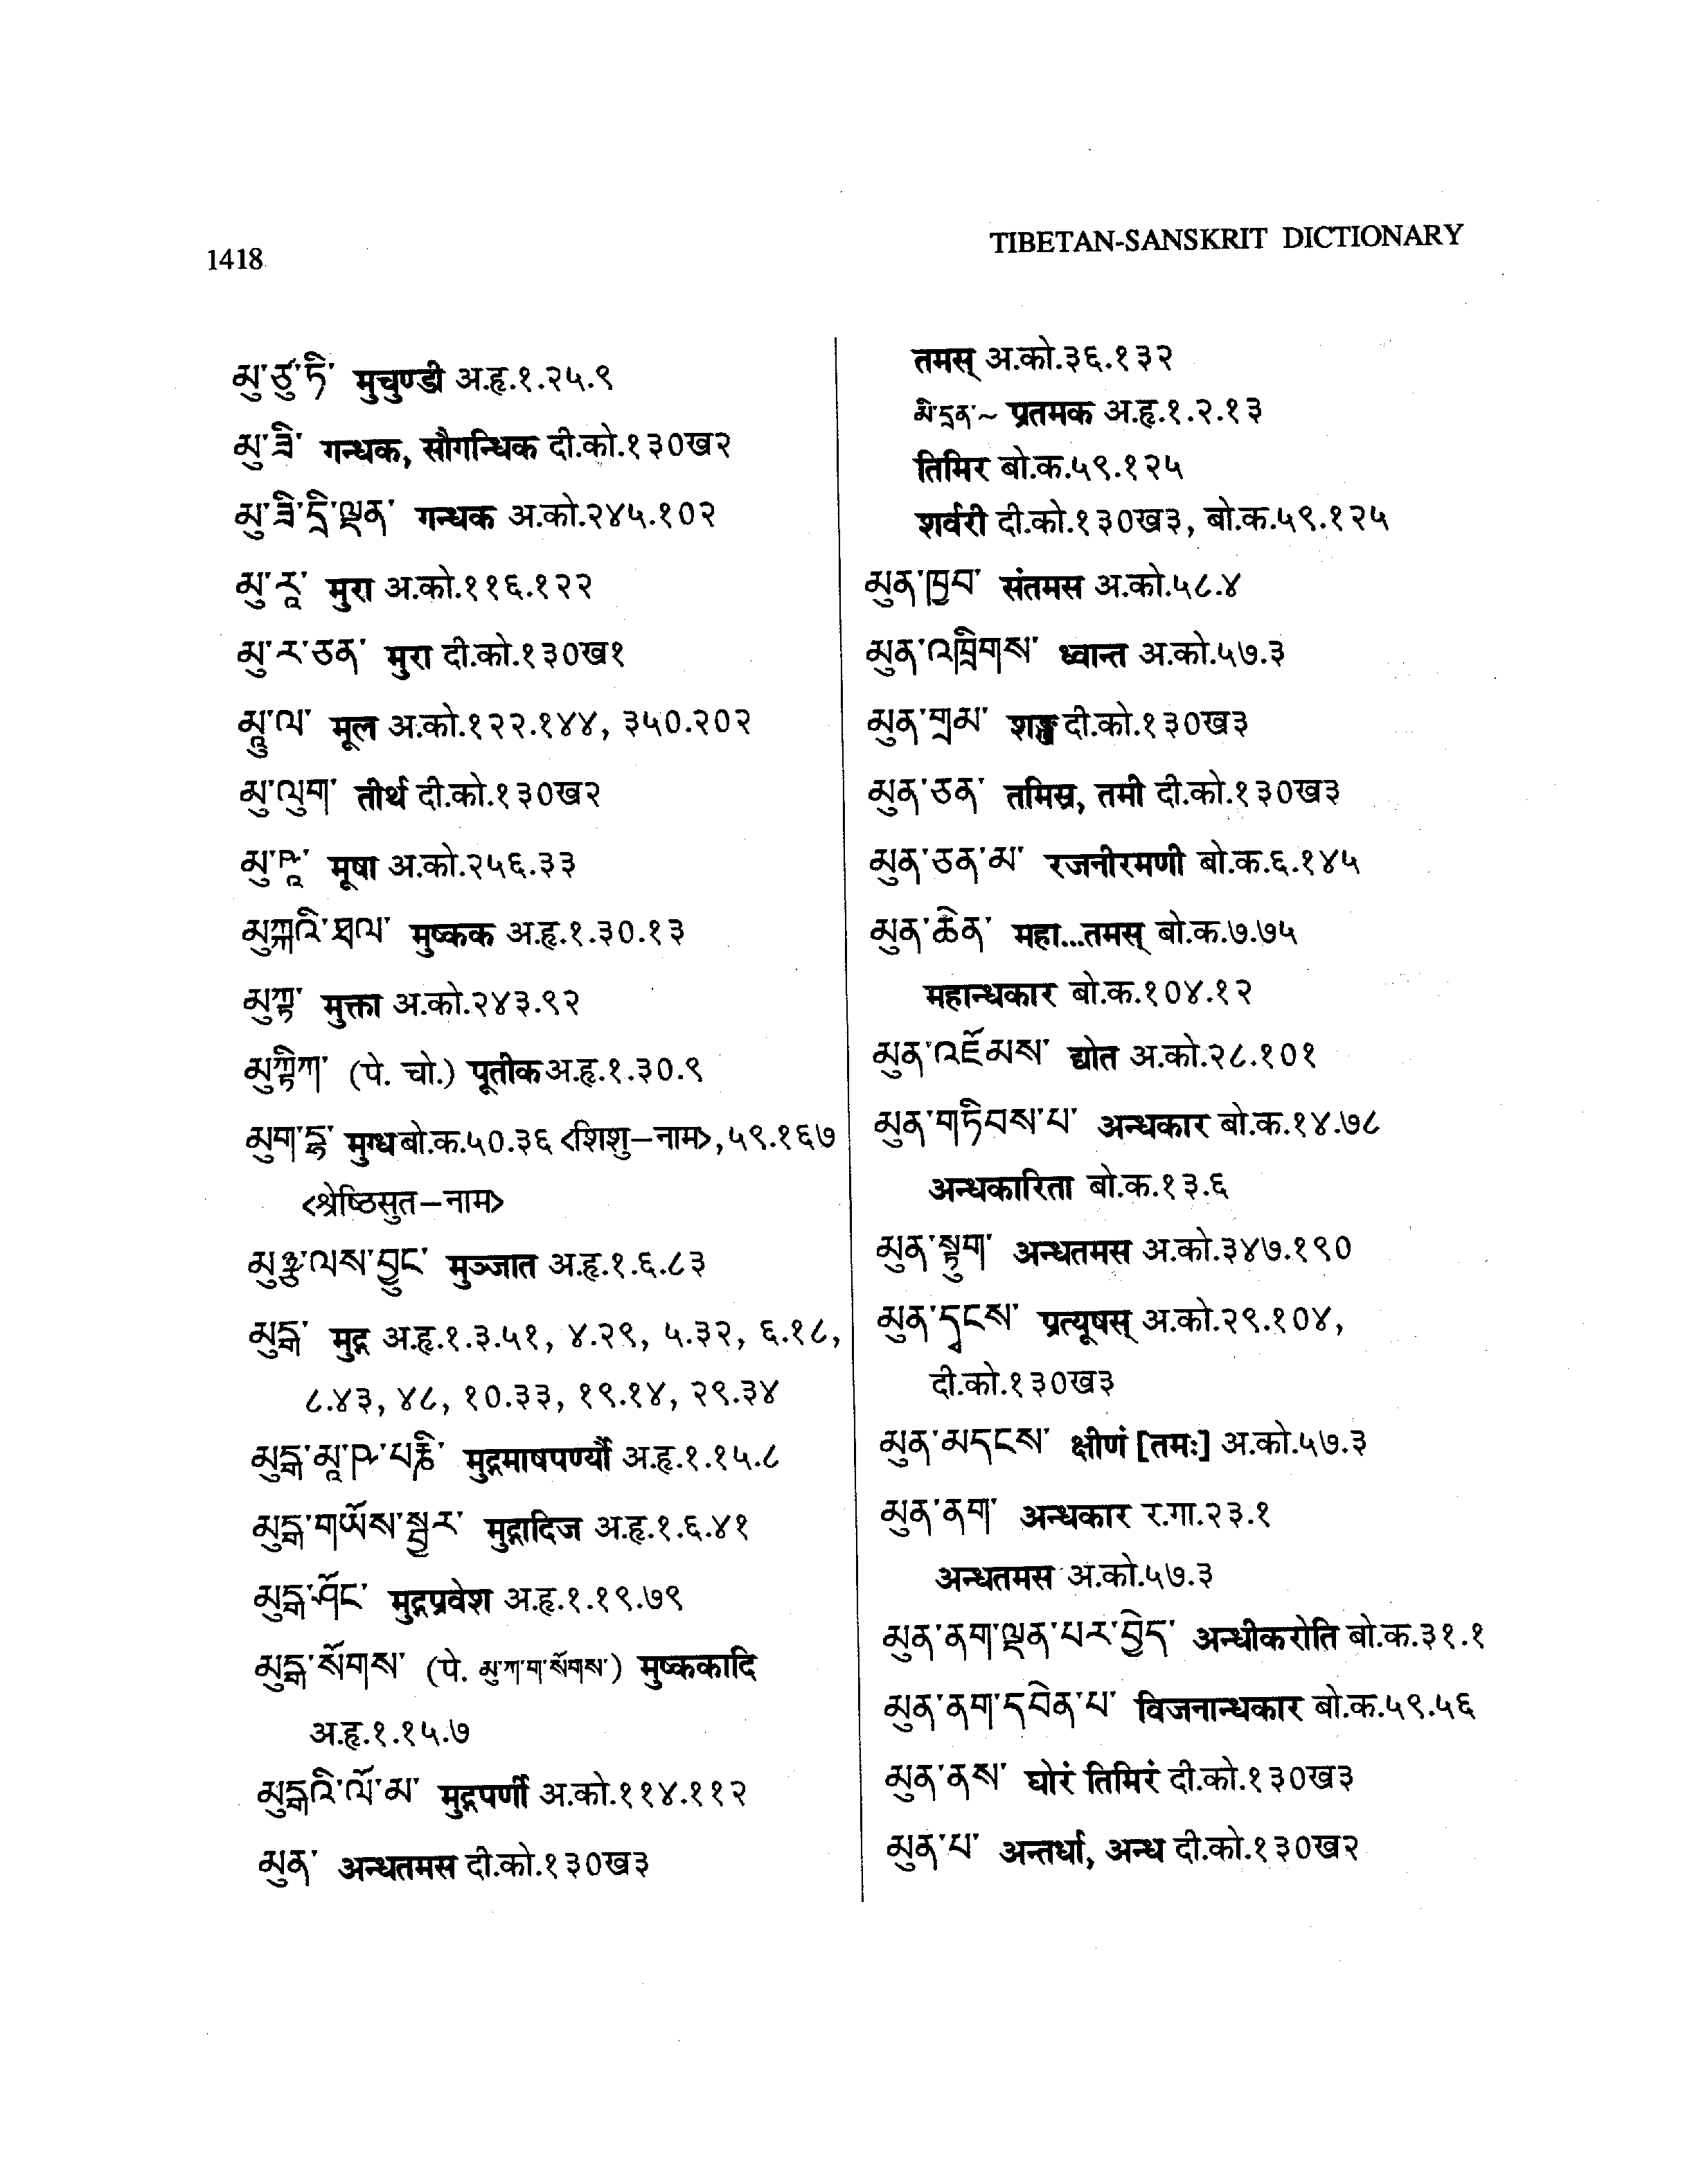 1418
TIBETAN-SANSKRIT DICTIONARY
མུ་ཙུ་ཏི་ मुचुण्डी अ.हृ.१.२५.९
མུ་ཟི་ गन्धक, सौगन्धिक दी.को.१३०ख२
མུ་ཟི་དྲི་ལྡན་ गन्धक अ.को.२४५.१०२
མུ་རཱ་ मुरा अ.को.११६.१२२
མུ་ར་ཅན་ मुरा दी.को.१३०ख१
མཱུ་ལ་ मूल अ.को.१२२.१४४, ३५०.२०२
མུ་ལུག་ तीर्थ दी.को.१३०ख२
མུ་ཥཱ་ मूषा अ.को.२५६.३३
མུཀྐའི་ཐལ་ मुष्कक अ.हृ.१.३०.१३
མུཀྟ་ मुक्ता अ.को.२४३.९२
མུཀྟིཀ་ (पे. चो.) पूतीक अ.हृ.१.३०.९
མུག་དྷ་ मुग्ध बो.क.५०.३६ <शिशु-नाम>, ५९.१६७
<श्रेष्ठिसुत-नाम>
མུཉྫུ་ལས་བྱུང་ मुञ्जात अ.हृ.१.६.८३
མུདྒ་ मुद्ग अ.हृ.१.३.५१, ४.२९, ५.३२, ६.१८,
८.४३, ४८, १०.३३, १९.१४, २९.३४
མུདྒ་མཱ་ཥ་པརྞི་ मुद्गमाषपर्ण्यौ अ.हृ.१.१५.८
མུདྒ་གཡོས་སྦྱར་ मुद्गादिज अ.हृ.१.६.४१
མུདྒ་ཤོང་ मुद्गप्रवेश अ.हृ.१.१९.७९
མུདྒ་སོགས་ (पे. མུ་ཀ་ག་སོགས་) मुष्ककादि
अ.हृ.१.१५.७
མུདྒའི་ལོ་མ་ मुद्गपर्णी अ.को.११४.११२
མུན་ अन्धतमस दी.को.१३०ख३
तमस् अ.को.३६.१३२
མི་དྲན་~ प्रतमक अ.हृ.१.२.१३
तिमिर बो.क.५९.१२५
शर्वरी दी.को.१३०ख३, बो.क.५९.१२५
མུན་ཁྱབ་ संतमस अ.को.५८.४
མུན་འཁྲིགས་ ध्वान्त अ.को.५७.३
མུན་གྲམ་ दी.को.१३०ख३
མུན་ཅན་ तमिस्र, तमी दी.को.१३०ख३
མུན་ཅན་མ་ रजनीरमणी बो.क.६.१४५
མུན་ཆེན་ महा...तमस् बो.क.७.७५
महान्धकार बो.क.१०४.१२
མུན་འཇོམས་ द्योत अ.को.२८.१०१
མུན་གཏིབས་པ་ अन्धकार बो.क.१४.७८
अन्धकारिता बो.क.१३.६
མུན་སྟུག་ अन्धतमस अ.को.३४७.१९०
མུན་དྭངས་ प्रत्यूषस् अ.को.२९.१०४,
दी.को.१३०ख३
མུན་མདངས་ क्षीणं [तमः] अ.को.५७.३
མུན་ནག་ अन्धकार र.गा.२३.१
अन्धतमस अ.को.५७.३
མུན་ནག་ལྡན་པར་བྱེད་ अन्धीकरोति बो.क.३१.१
མུན་ནག་དབེན་པ་ विजनान्धकार बो.क.५९.५६
མུན་ནས་ घोरं तिमिरं दी.को.१३०ख३
མུན་པ་ अन्तर्धा, अन्ध दी.को.१३०ख२